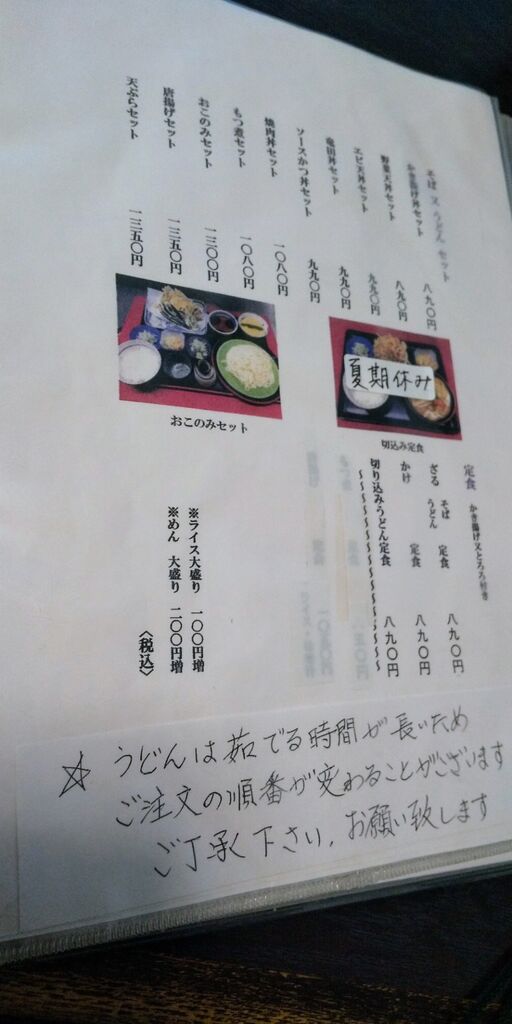 そば 又 うどん セット
かき揚げ丼セット 八九〇円
野菜天丼セット 八九〇円
エビ天丼セット 九九〇円
竜田丼セット 九九〇円
ソースかつ丼セット 九九〇円
焼肉丼セット 一〇八〇円
もつ煮セット 一〇八〇円
おこのみセット 一三〇〇円
唐揚げセット 一三五〇円
天ぷらセット 一三五〇円
夏期休み
切込み定食
おこのみセット
定食 かき揚げ又とろろ付き
ざる そば 定食 八九〇円
うどん
かけ 定食 八九〇円
切り込みうどん定食 八九〇円
※ライス大盛り 一〇〇円増
※めん 大盛り 二〇〇円増
〈税込〉
☆ うどんは茹でる時間が長いため
ご注文の順番が変わることがございます
ご了承下さい、お願い致します